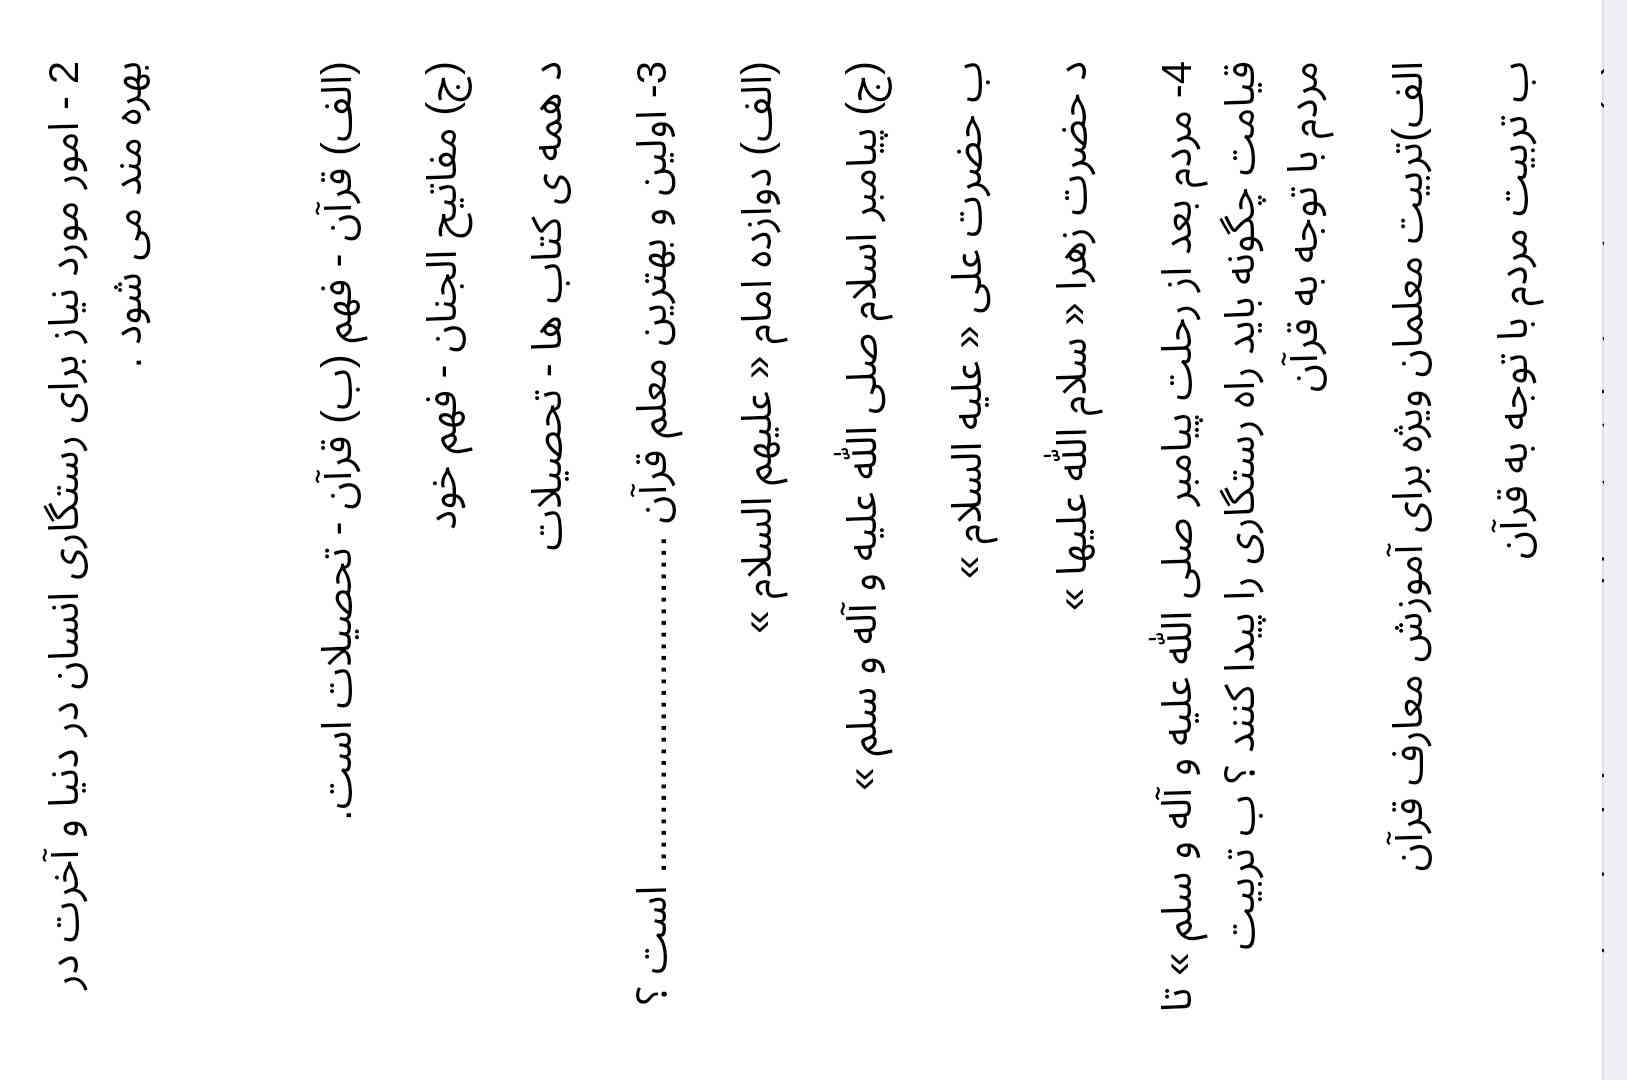 2 - امور مورد نیاز برای رستگاری انسان در دنیا و آخرت در
بهره مند می شود .
(الف) قرآن - فهم (ب) قرآن - تحصیلات است.
(ج) مفاتیح الجنان - فهم خود
د همه ی کتاب ها - تحصیلات
3- اولین و بهترین معلم قرآن ............................. است ؟
(الف) دوازده امام « علیهم السلام »
(ج) پیامبر اسلام صلی الله علیه و آله و سلم »
ب حضرت علی « علیه السلام »
د حضرت زهرا « سلام الله علیها »
4- مردم بعد از رحلت پیامبر صلی الله علیه و آله و سلم » تا
قیامت چگونه باید راه رستگاری را پیدا کنند ؟ ب تربیت
مردم با توجه به قرآن
الف)تربیت معلمان ویژه برای آموزش معارف قرآن
ب تربیت مردم با توجه به قرآن